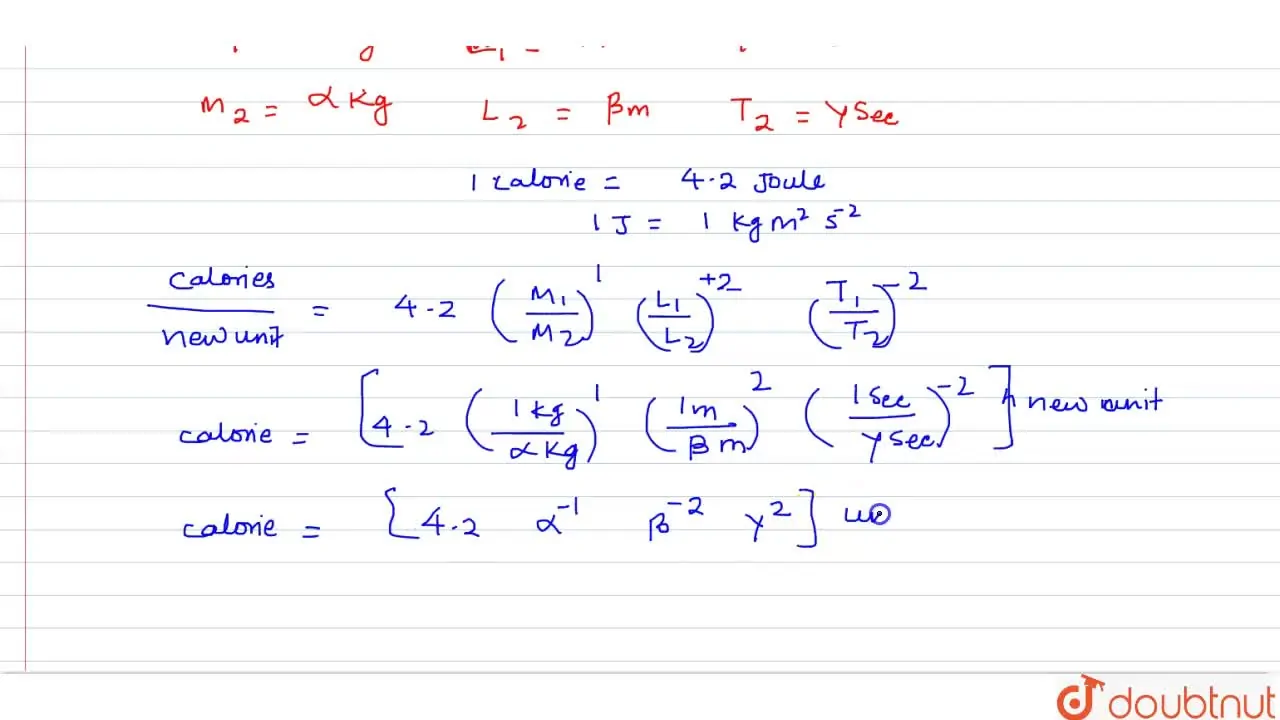 M₂ = αkg L₂ = βm T₂ = γSec
1 calorie = 4.2 Joule
1 J = 1 kg m² s⁻²
calories / new unit = 4.2 (M₁/M₂)¹ (L₁/L₂)⁺² (T₁/T₂)⁻²
calorie = [4.2 (1kg/αkg)¹ (1m/βm)² (1Sec/γSec)⁻²] new unit
calorie = [4.2 α⁻¹ β⁻² γ²]
doubtnut